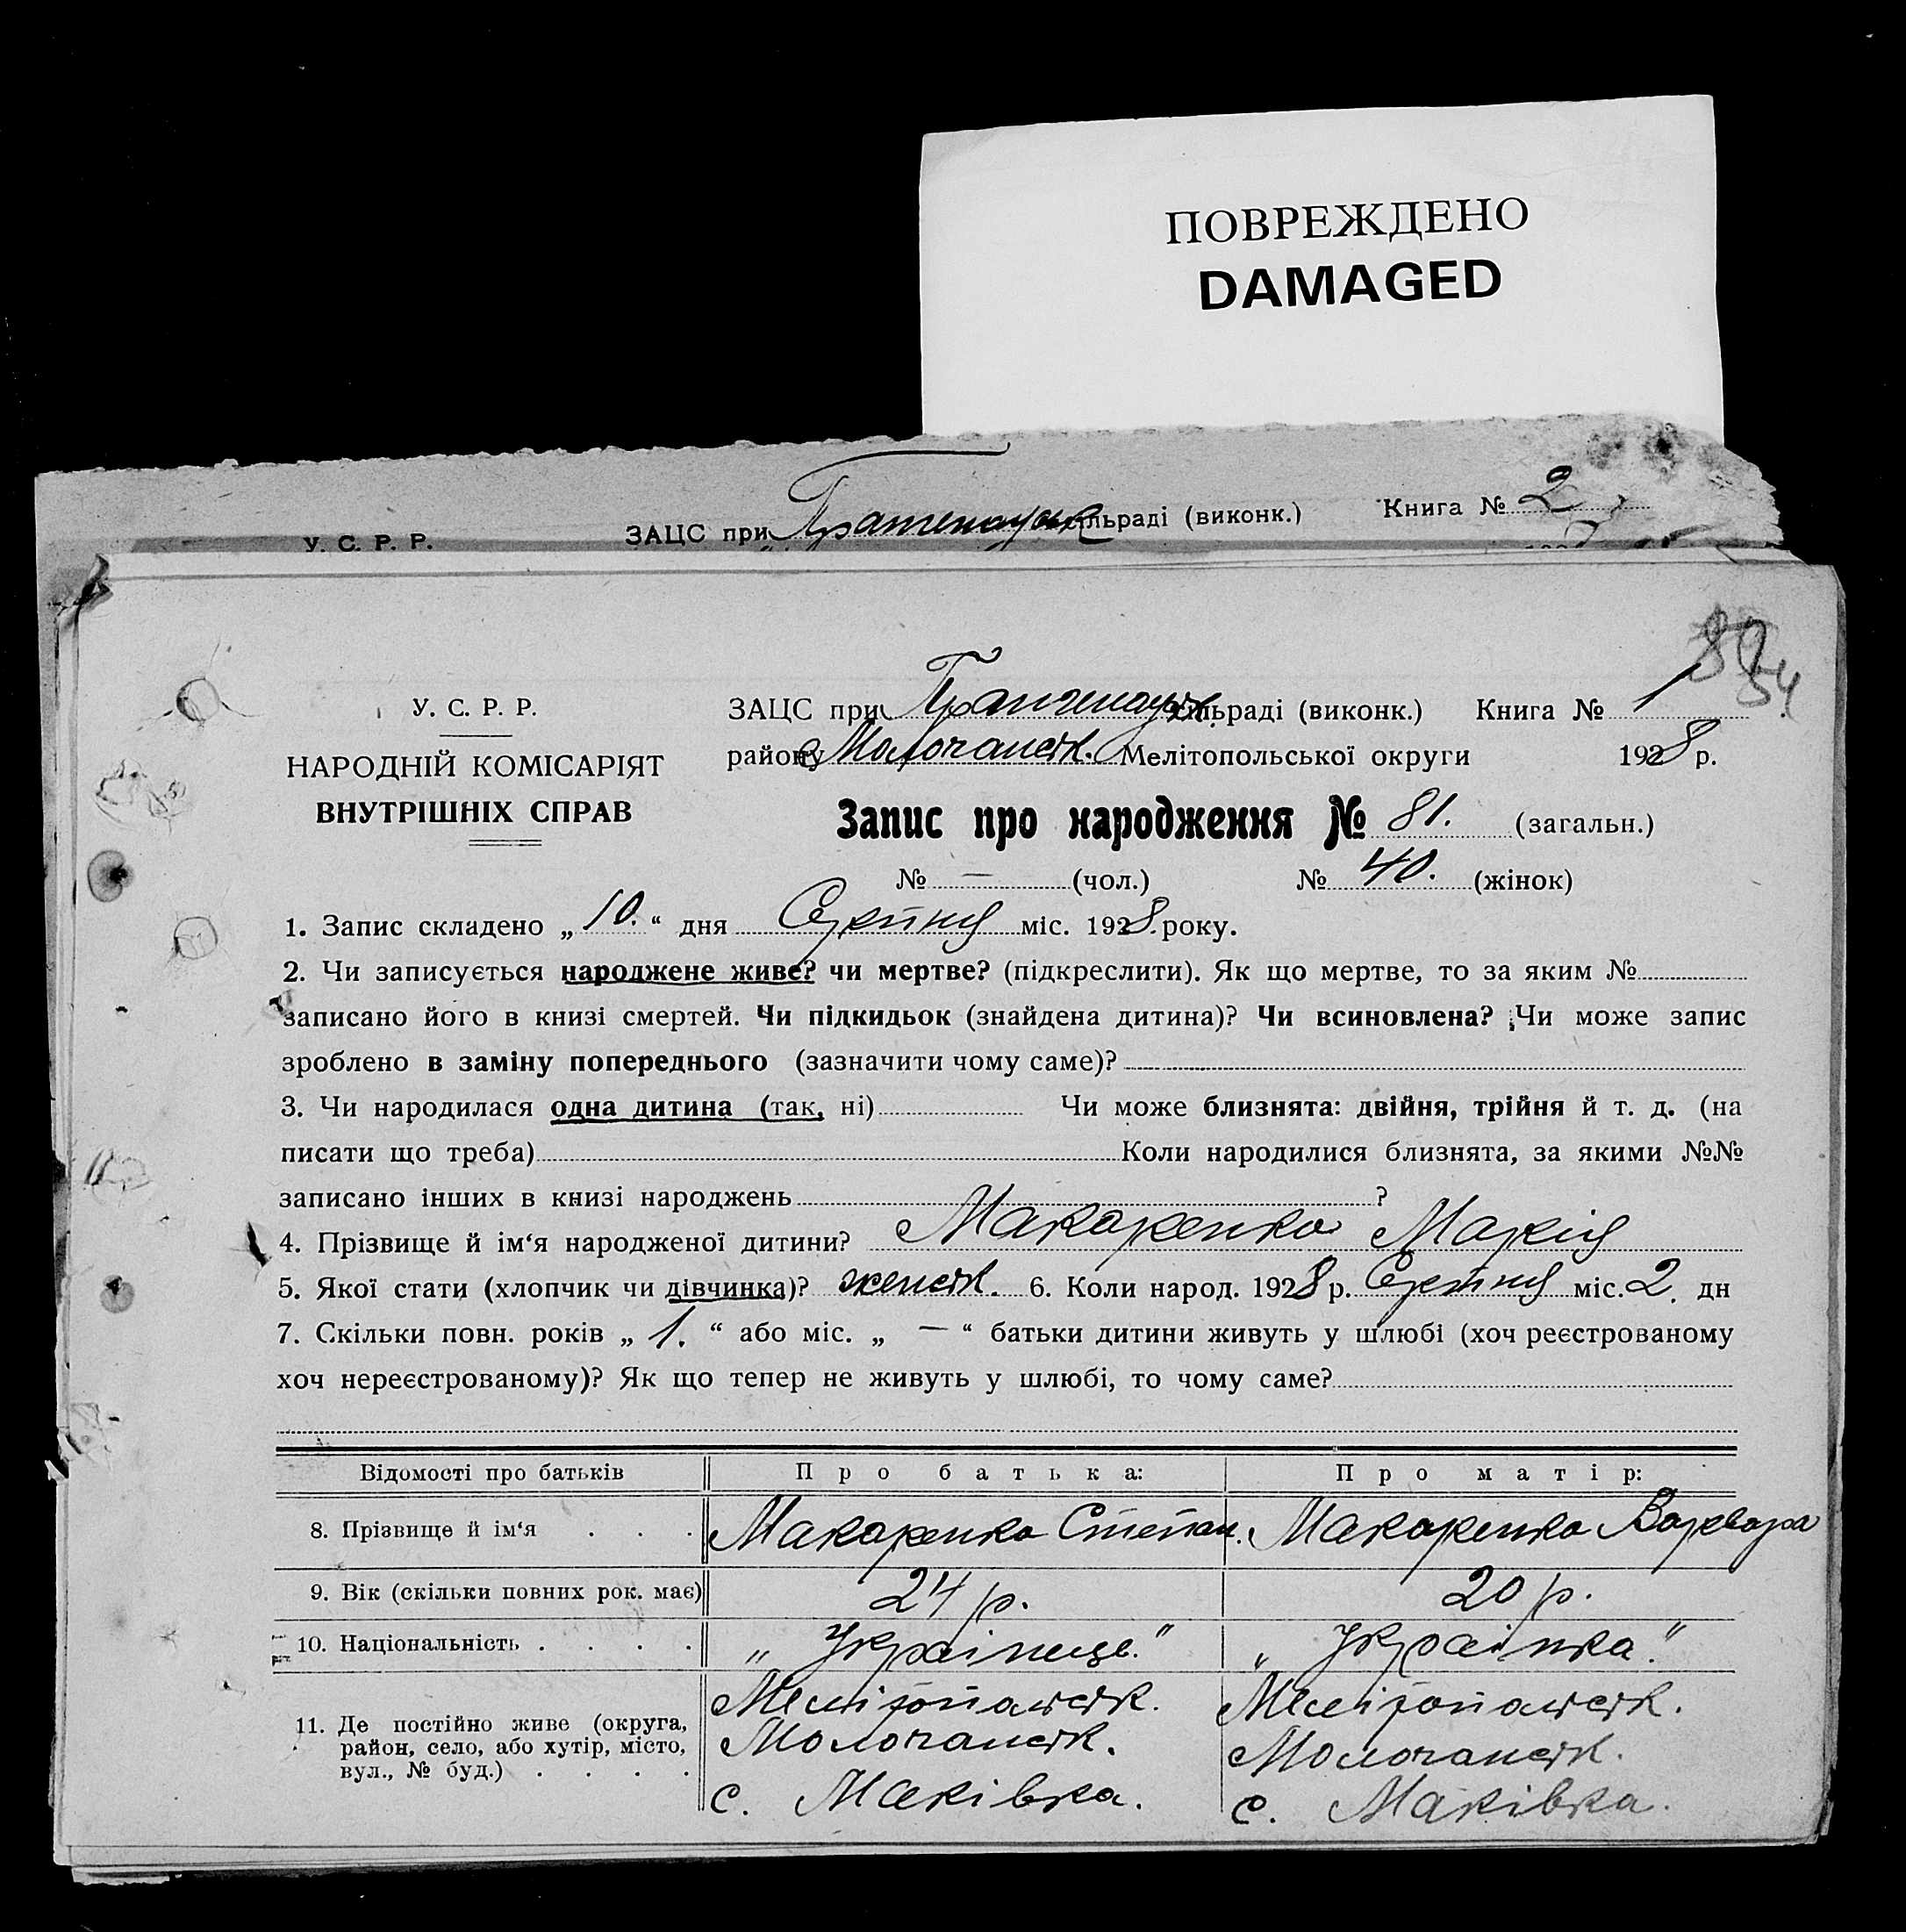 ПОВРЕЖДЕНО
DAMAGED
У. С. Р. Р.
ЗАЦС при сільраді (виконк.) Книга № 2
У. С. Р. Р.
НАРОДНІЙ КОМІСАРІЯТ
ВНУТРІШНІХ СПРАВ
ЗАЦС при сільраді (виконк.) Книга № 1
району Молочанськ. Мелітопольської округи 1928 р.
Запис про народження № 81. (загальн.)
№ — (чол.) № 40. (жінок)
1. Запис складено „10.“ дня Серпня міс. 1928 року.
2. Чи записується народжене живе? чи мертве? (підкреслити). Як що мертве, то за яким №
записано його в книзі смертей. Чи підкидьок (знайдена дитина)? Чи всиновлена? Чи може запис
зроблено в заміну попереднього (зазначити чому саме)?
3. Чи народилася одна дитина (так, ні) Чи може близнята: двійня, трійня й т. д. (на
писати що треба) Коли народилися близнята, за якими №№
записано інших в книзі народжень ?
4. Прізвище й ім‘я народженої дитини? Макаренко Марія
5. Якої стати (хлопчик чи дівчинка)? женськ. 6. Коли народ. 1928 р. Серпня міс. 2. дн
7. Скільки повн. років „1.“ або міс. „—“ батьки дитини живуть у шлюбі (хоч реєстрованому
хоч нереєстрованому)? Як що тепер не живуть у шлюбі, то чому саме?
Відомості про батьків Про батька: Про матір:
8. Прізвище й ім‘я . . . Макаренко Степан. Макаренко Варвара
9. Вік (скільки повних рок. має) 24 р. 20 р.
10. Національність . . . . „Українець.“ „Українка.“
11. Де постійно живе (округа, район, село, або хутір, місто, вул., № буд.) . . . .
Мелітопольськ. Мелітопольськ.
Молочанськ. Молочанськ.
с. Маківка. с. Маківка.